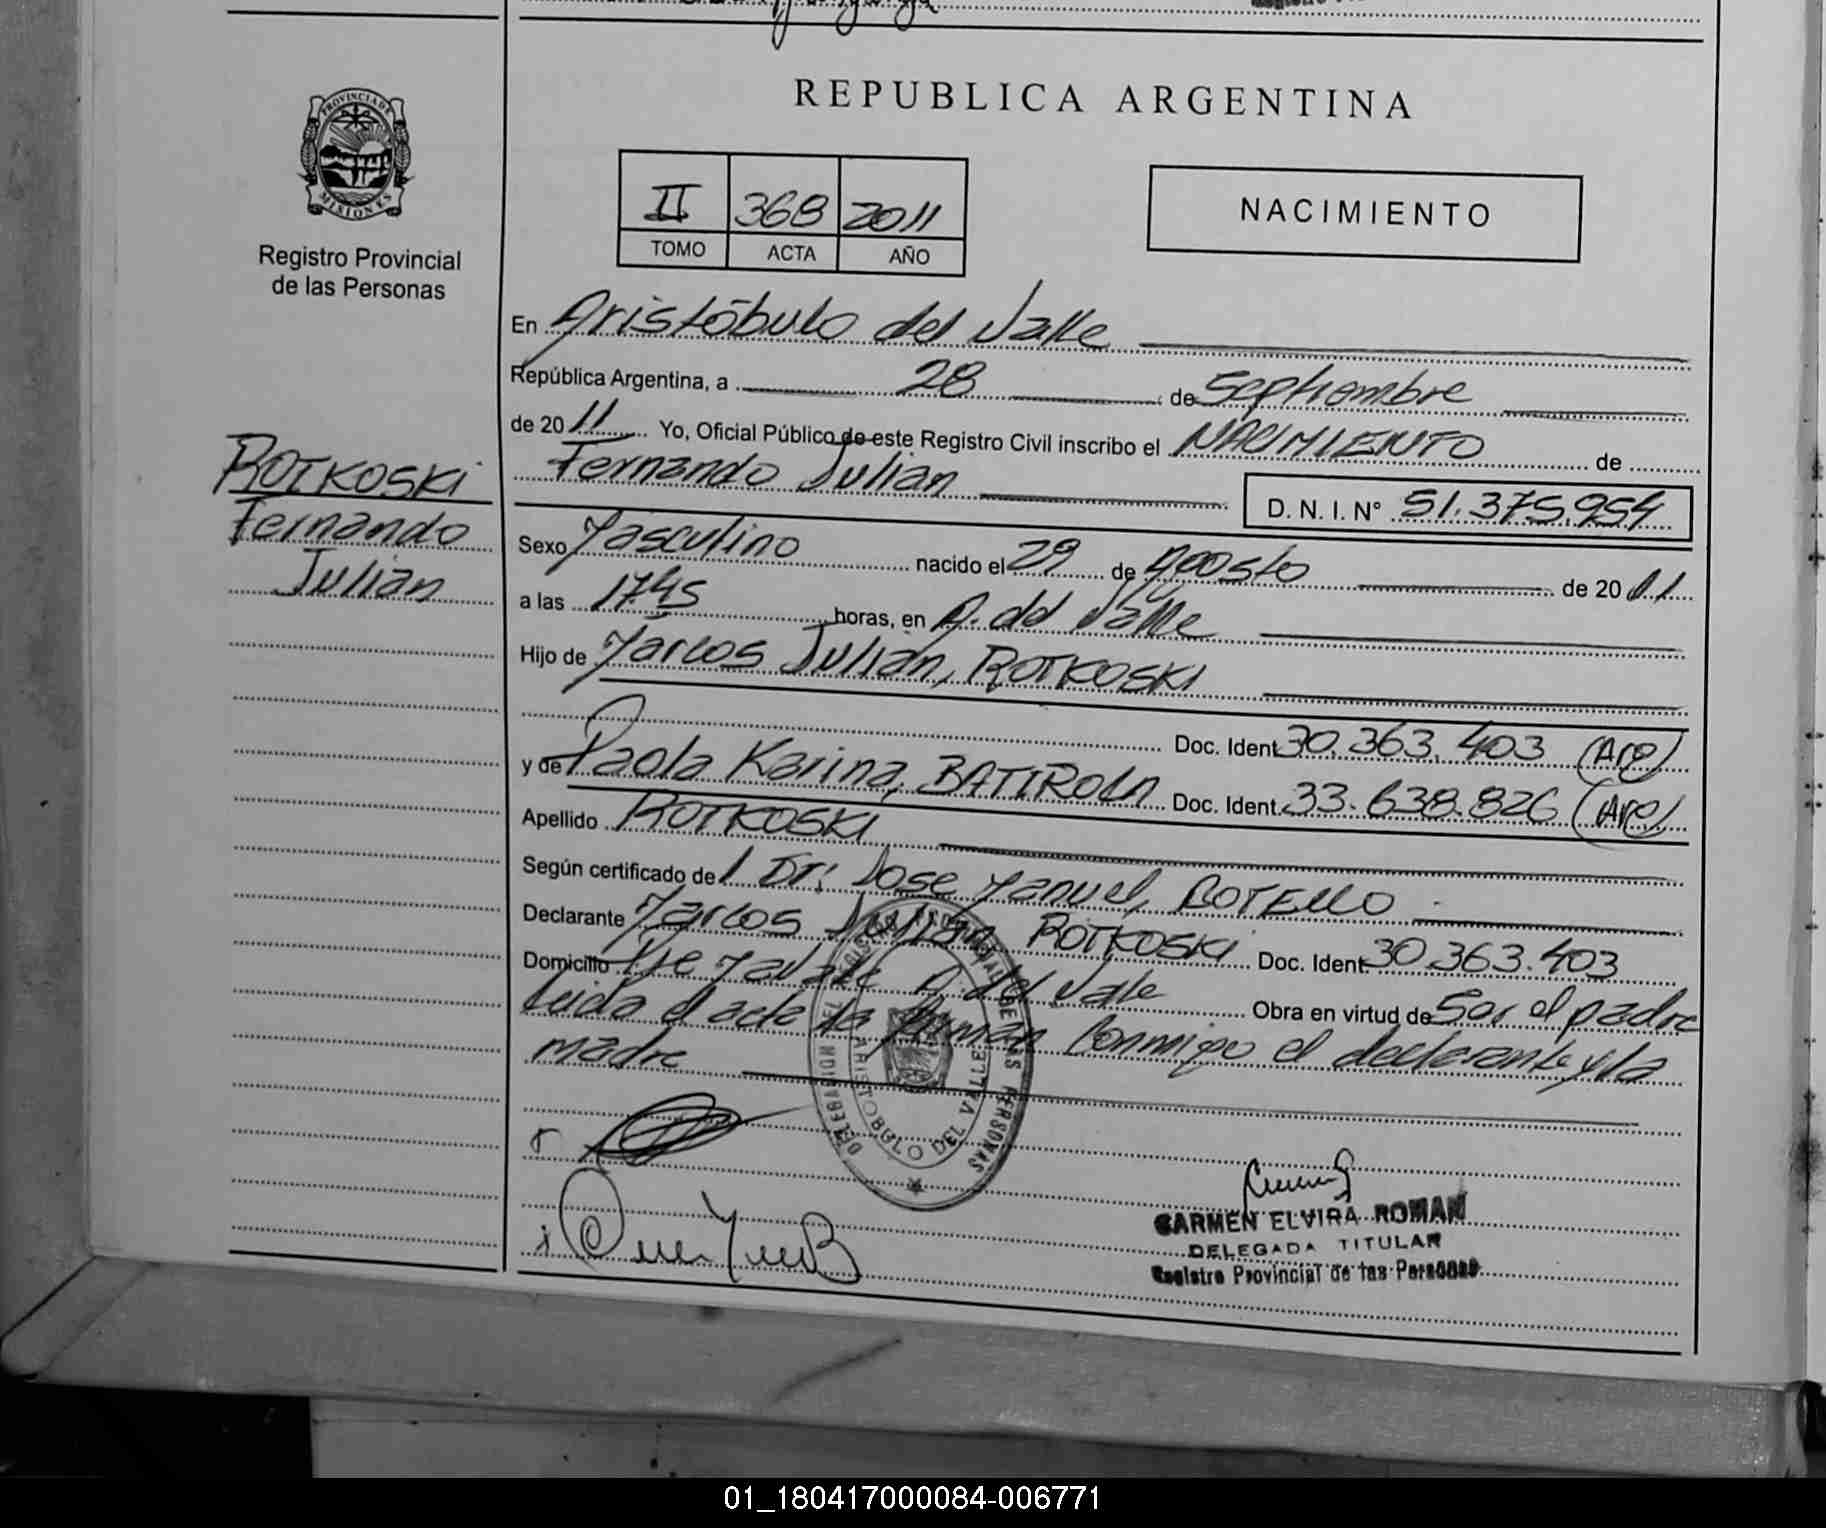 REPUBLICA ARGENTINA
PROVINCIA DE
MISIONES
Registro Provincial
de las Personas
II 368 2011
TOMO ACTA AÑO
NACIMIENTO
En Aristóbulo del Valle
República Argentina, a 28 de Septiembre
de 2011 Yo, Oficial Público de este Registro Civil inscribo el NACIMIENTO de
Fernando Julian D. N. I. N° 51.375.954
ROTKOSKI
Fernando
Julian
Sexo Masculino nacido el 29 de Agosto de 2011
a las 17.45 horas, en A. del Valle
Hijo de Marcos Julian, ROTKOSKI
Doc. Ident. 30.363.403 (Arg)
y de Paola Karina, BATIROLA Doc. Ident. 33.638.826 (Arg)
Apellido ROTKOSKI
Según certificado del Dr. Jose Manuel, BOTELLO
Declarante Marcos Julian ROTKOSKI Doc. Ident. 30.363.403
Domicilio A. del Valle Obra en virtud de Ser el padre
Leida el acta la firman Conmigo el declarante y la
madre
REGISTRO PROVINCIAL DE LAS PERSONAS
DELEGACION
ARISTOBULO DEL VALLE
CARMEN ELVIRA ROMAN
DELEGADA TITULAR
Registro Provincial de las Personas
01_180417000084-006771